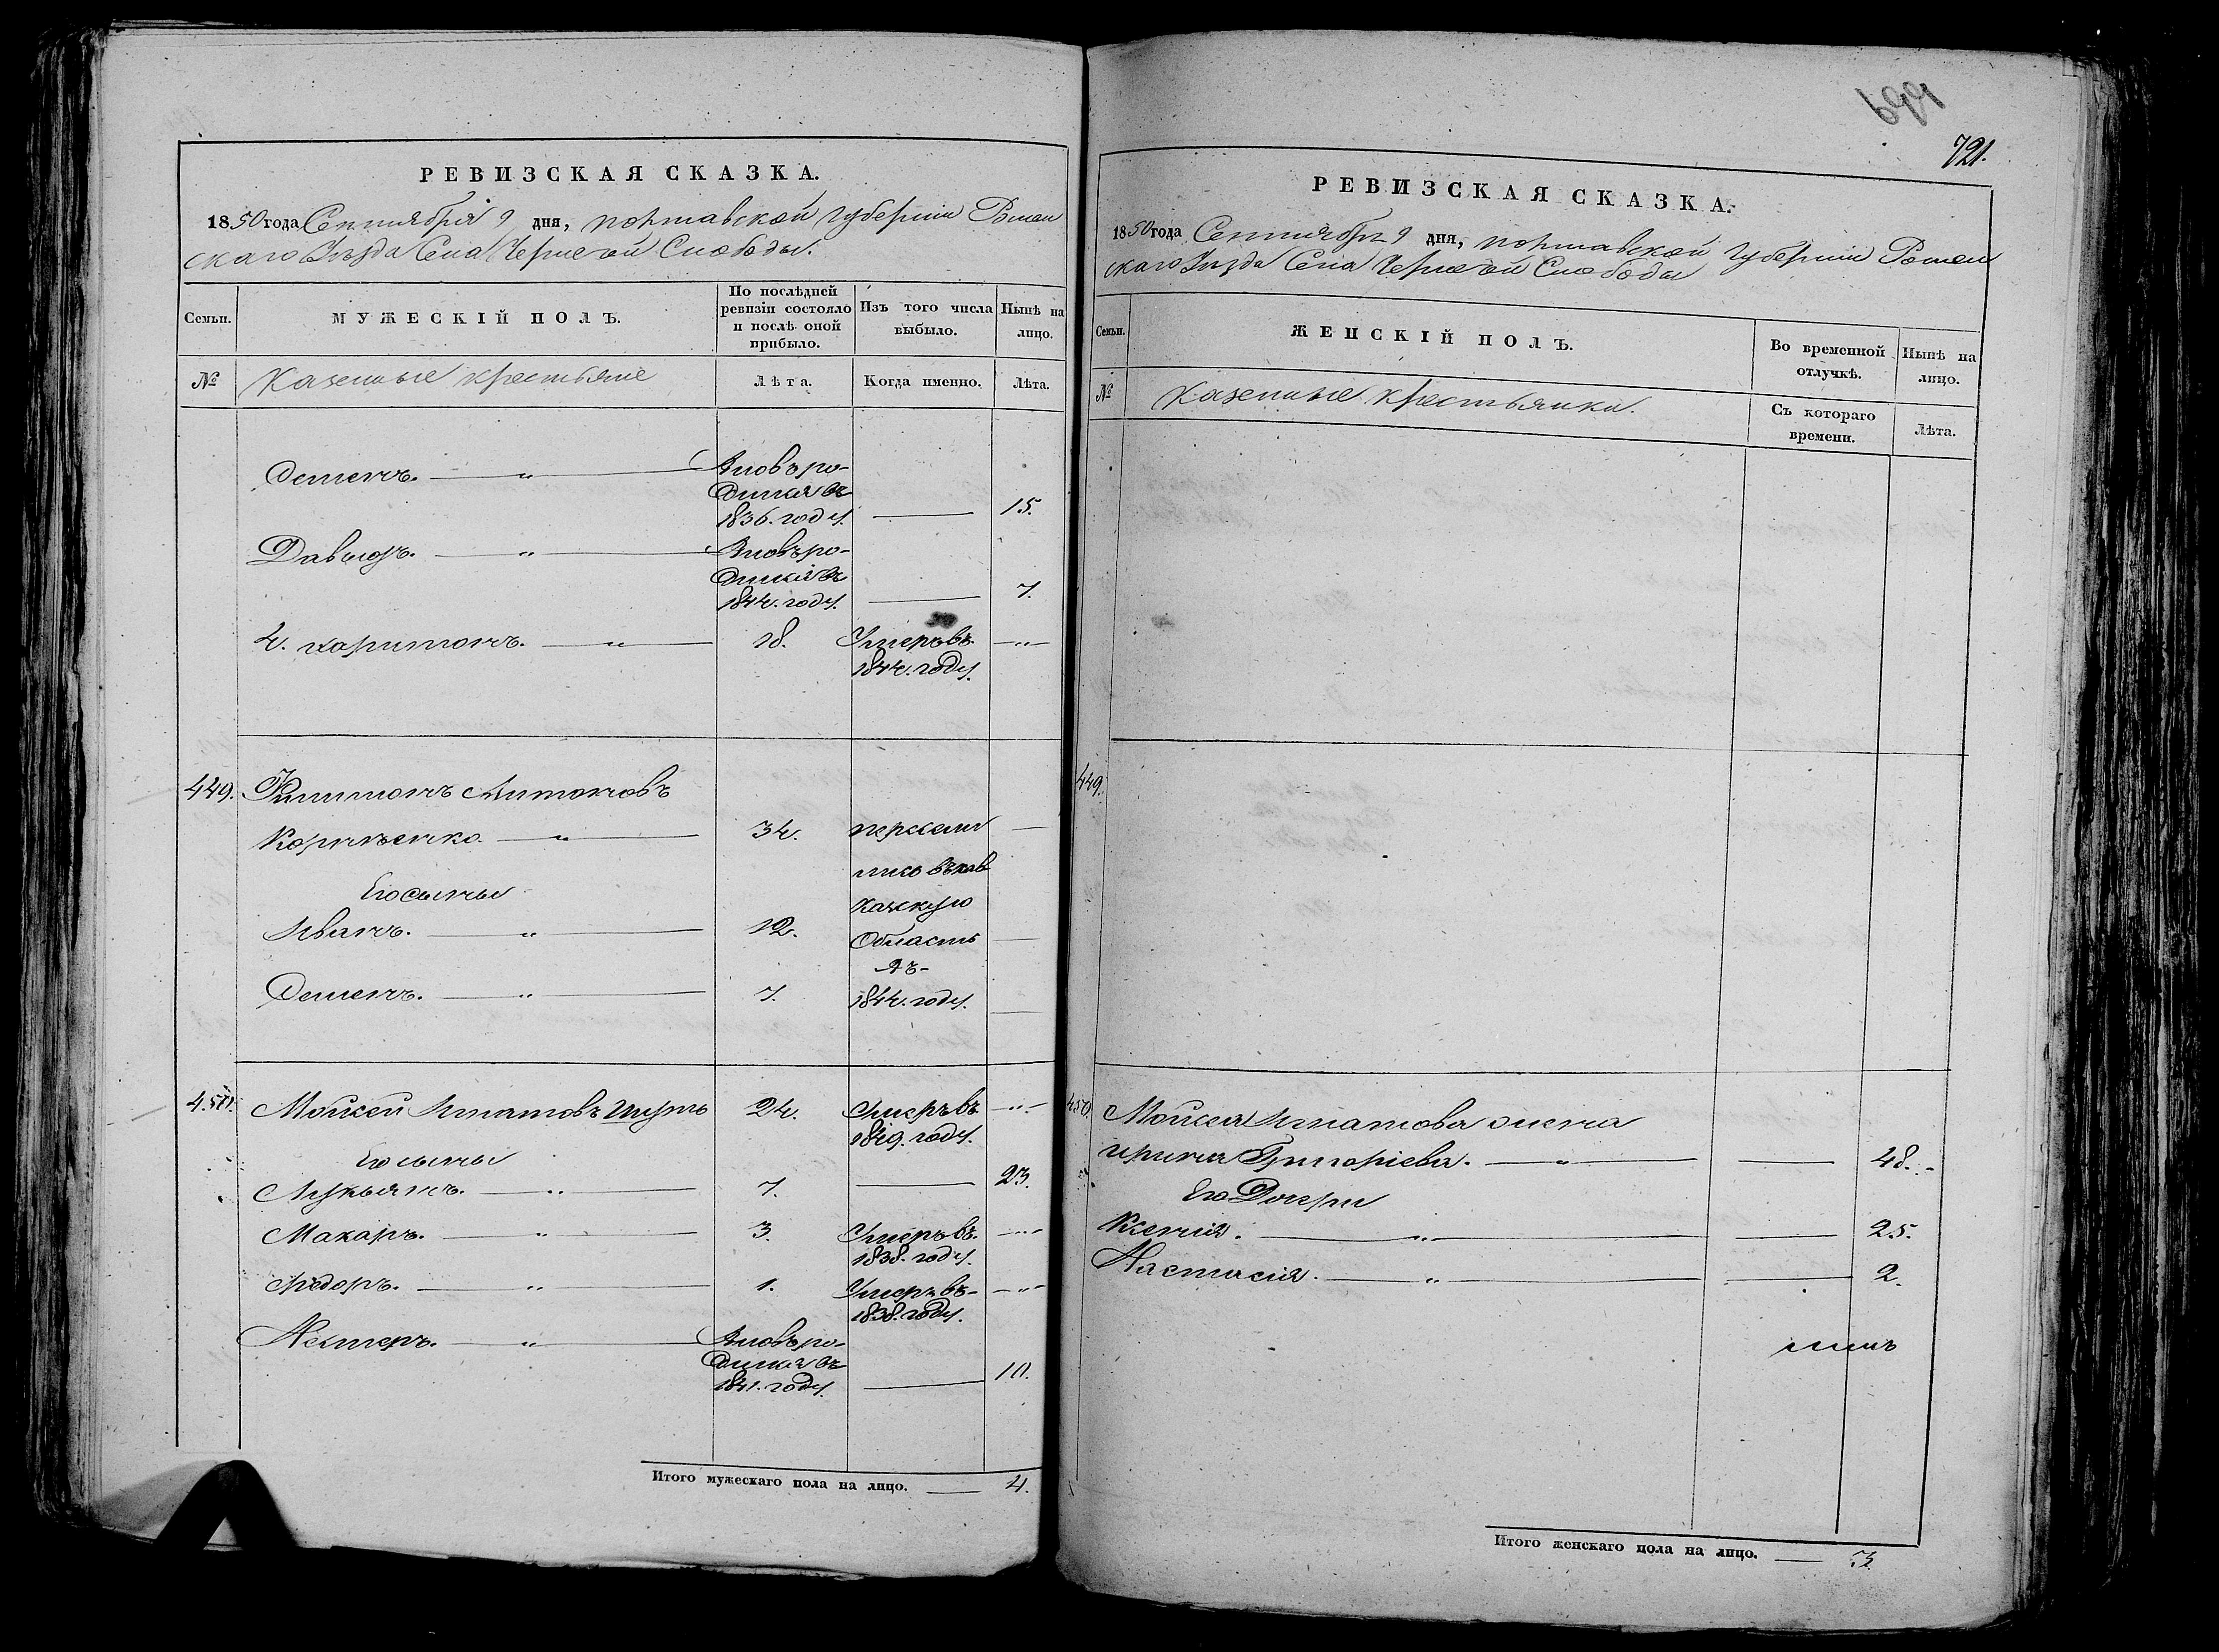 699
721.
РЕВИЗСКАЯ СКАЗКА.
1850 года Сентября 9 дня, полтавской губернии Ромен
скаго Уезда Села Черчечой Слободы.
Семьи.
МУЖЕСКІЙ ПОЛЪ.
По послѣдней ревизіи состояло и послѣ оной прибыло.
Изъ того числа выбыло.
Нынѣ на лицо.
№
Казенные крестьяне
Лѣта.
Когда именно.
Лѣта.
Семенъ. — „ — Вновь ро-
дился въ
1836. году. — 15.
Давыдъ. — „ — Вновь ро-
дился въ
1844. году. — 7.
4. харитонъ. — „ — 18. Умеръ въ — „ —
1844. году.
449. Филимонъ Антоновъ
Корнѣенко. — „ — 34. пересели —
Его сыны
лись въ кав
казскую
Иванъ. — „ — 12. Область —
въ-
Семенъ. — „ — 7. 1844. году. —
450. Мойсей Игнатовъ 24. Умеръ въ — „ —
1849. году.
Его сыны
Лукьянъ. — „ — 7. — 23.
Макаръ. — „ — 3. Умеръ въ — „ —
1838. году.
Федоръ. — „ — 1. Умеръ въ- — „ —
1838. году.
Нестеръ. — „ — Вновь ро-
дился въ
1841. году. — 10.
Итого мужескаго пола на лицо. — 4.
РЕВИЗСКАЯ СКАЗКА.
1850 года Сентября 9 дня, полтавской губернии Ромен
скаго Уезда Села Слободы
Семьи.
ЖЕНСКІЙ ПОЛЪ.
Во временной отлучкѣ.
Нынѣ на лицо.
№
Казенные крестьянки.
Съ котораго времени.
Лѣта.
449.
450. Мойсея Игнатова жена
ирина Григоріева. — „ — — 48. -
Его Дочери
Ксенія. — „ — — 25.
Настасія. — „ — — 2.
Итого женскаго пола на лицо. — 3.